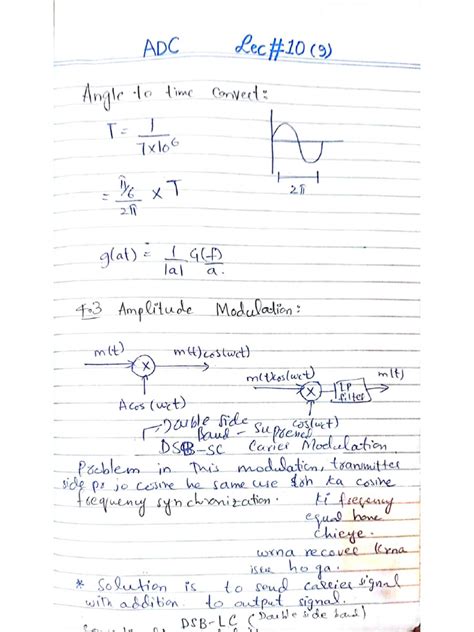 ADC Lec#10 (9)
Angle to time convert:
T = 1 / 7x10^6
= π/6 / 2π x T
2π
g(at) = 1/|a| G(f)/a.
4.3 Amplitude Modulation:
m(t) X m(t)cos(wct)
Acos(wct)
m(t)cos(wct) X LP filter m(t)
cos(wct)
Double side
Band - Supress
DSB-SC Carier Modulation
Problem in This modulation, transmitter
side pr jo cosine he same use ka cosine
frequency synchronization. ki freqency
equal hone
chieye.
wrna recover krna
issue hoga.
* Solution is to send carrier signal
with addition to output signal.
DSB-LC (Double side band)